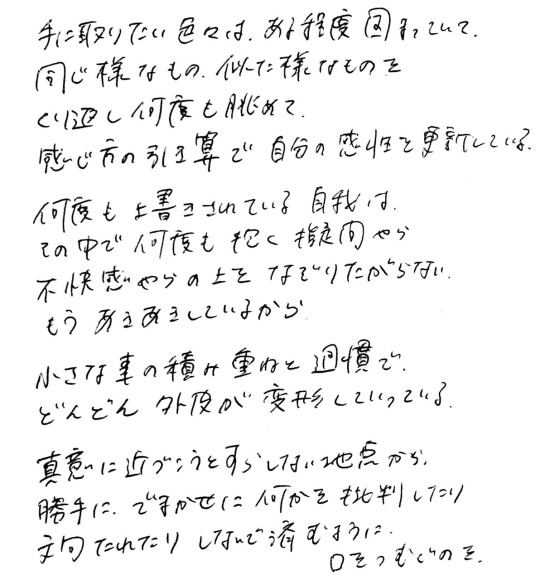 手に取りたい色々は、ある程度固まっていて、
同じ様なもの、似た様なものを
くり返し何度も眺めて、
感じ方の引き算で自分の感性を更新している。
何度も上書きされている自我は、
その中で何度も抱く疑問やら
不快感やらの上を なぞりたがらない。
もう あきあきしているから
小さな事の積み重ねと習慣で、
どんどん 外皮が変形していっている。
真意に近づこうとすらしない地点から、
勝手に、でまかせに何かを批判したり
文句たれたり しないで済むように、
口をつむぐのを。